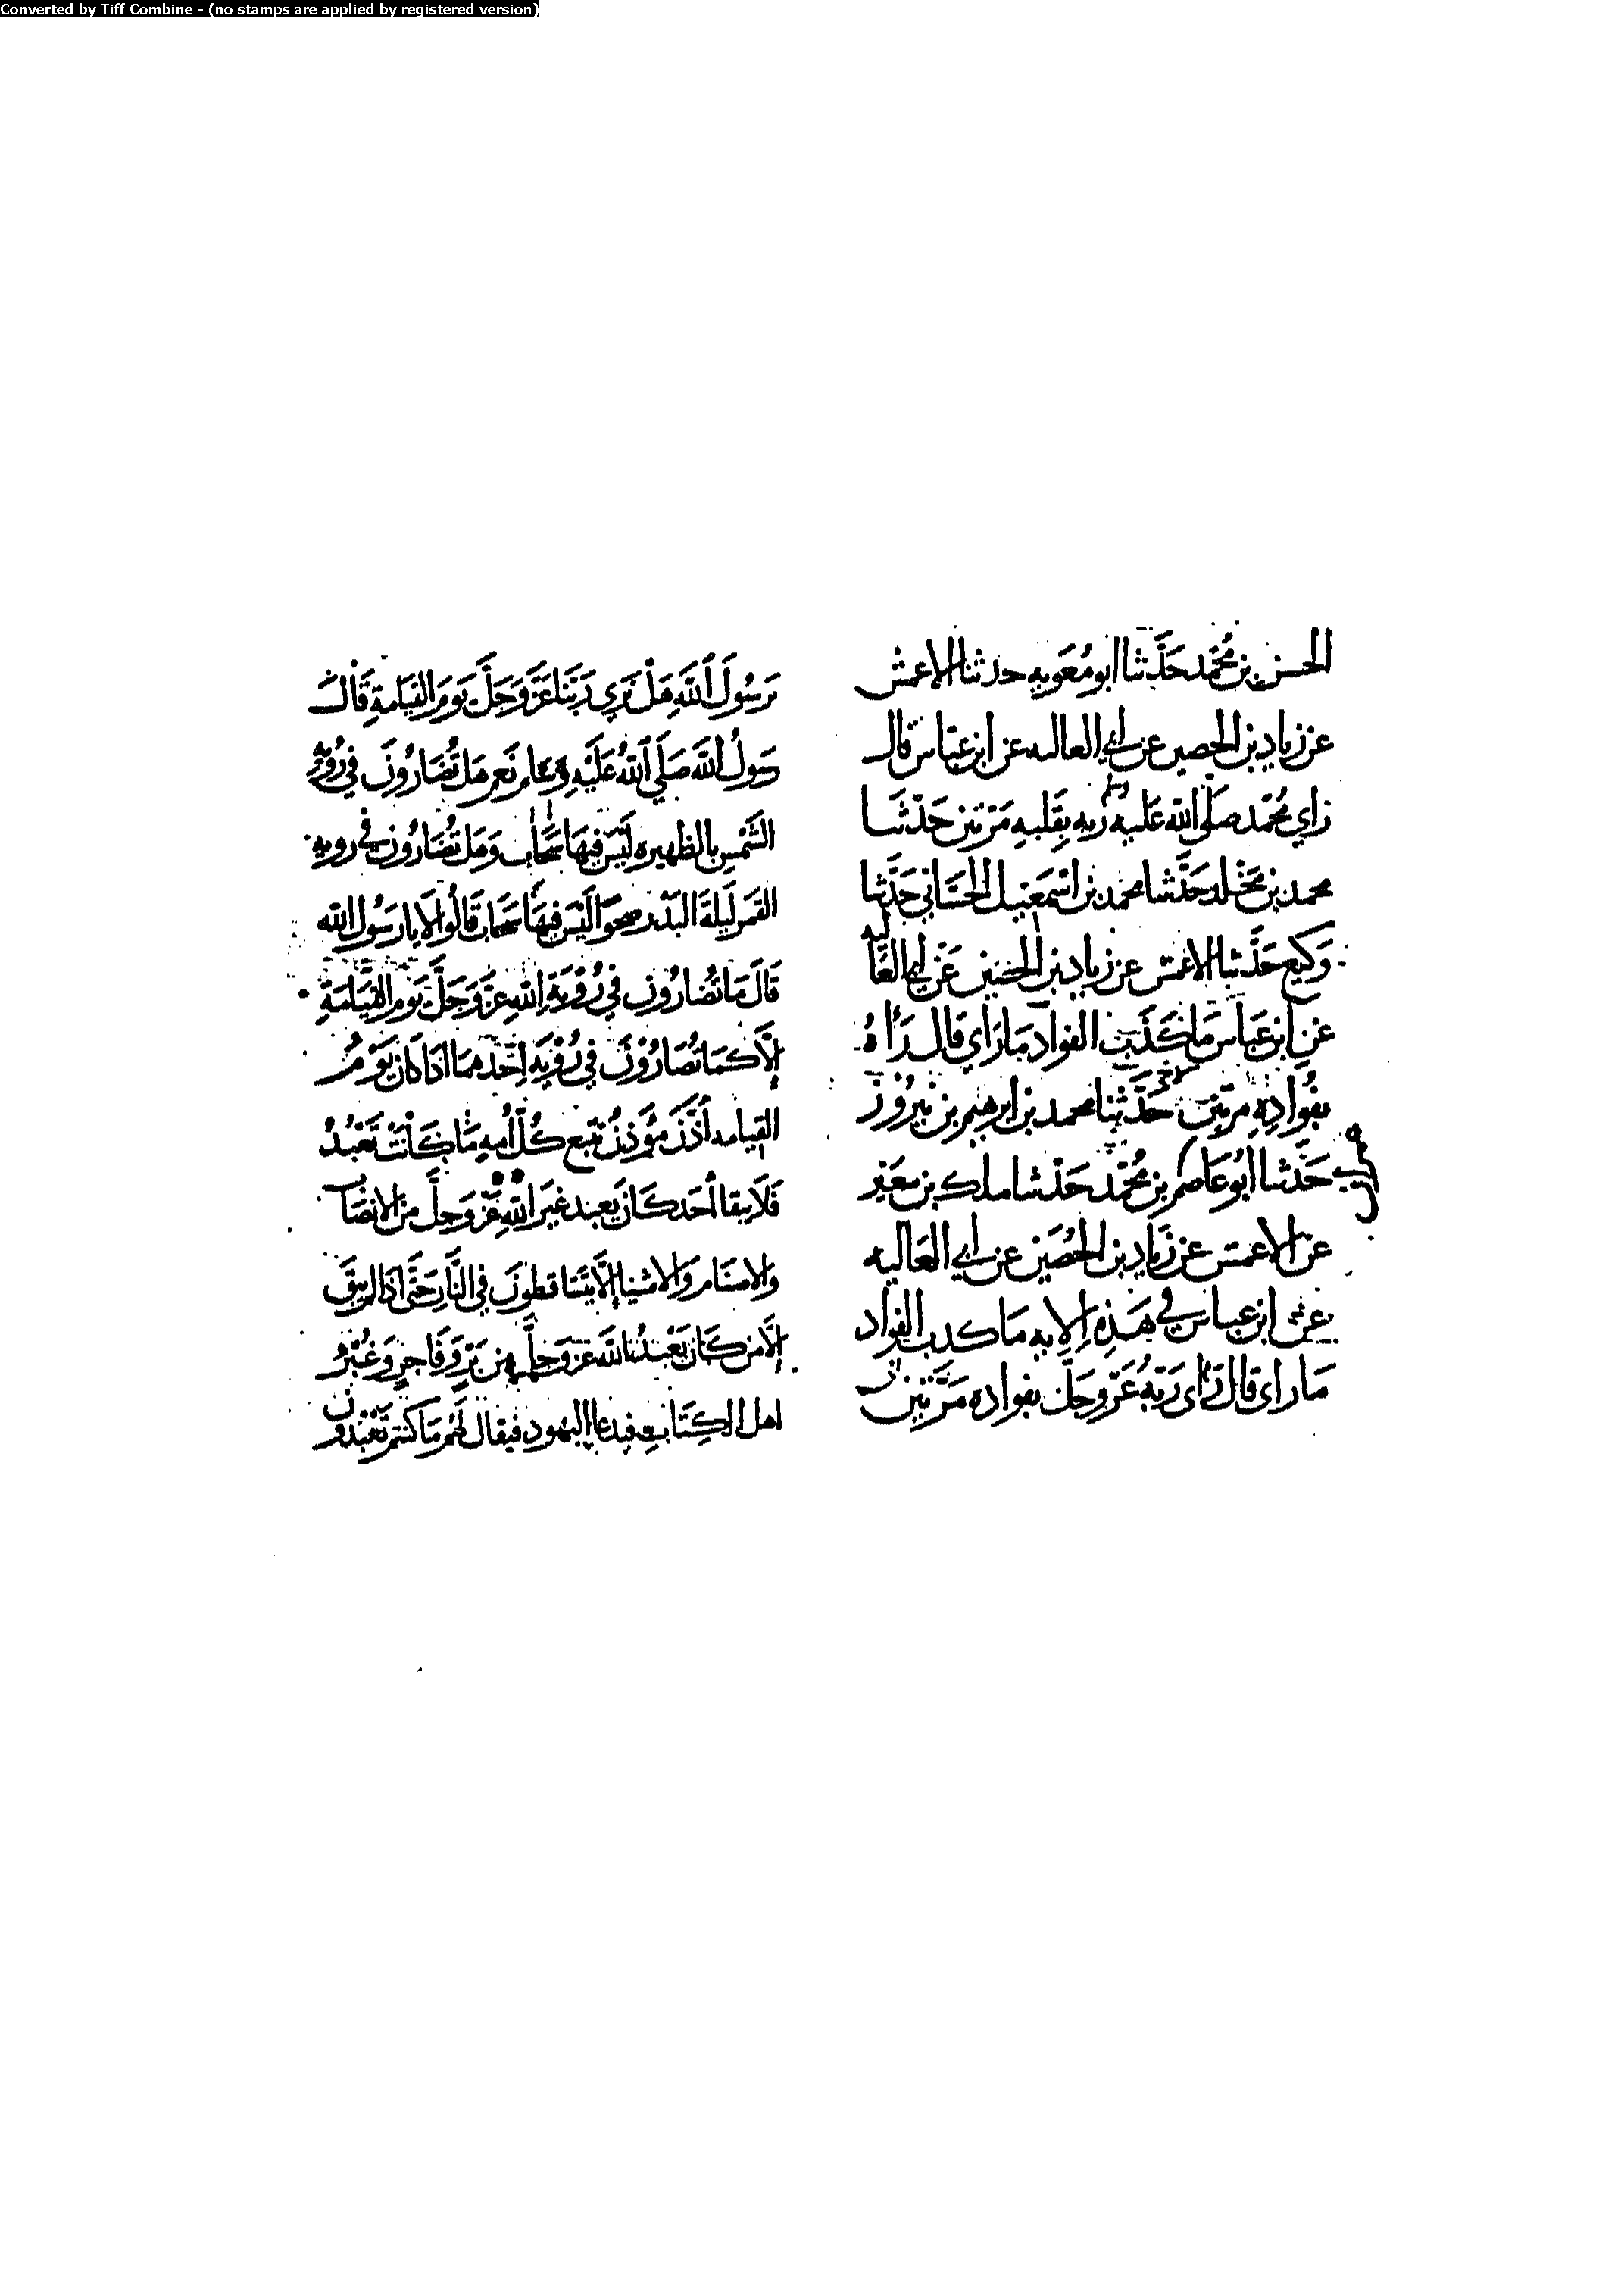 Converted by Tiff Combine - (no stamps are applied by registered version)
الحسن بن مُحَمَّد حَدَّثنا ابو مُعَوِيه حدثنا الاعمش
عن زياد بن الحصين عن ابي العاليه عن ابن عباس قال
رَاي مُحَمَّد صَلَّى الله عَليه وسلم ربه بِقَلبِهِ مَرَّتين حَدَّثَنا
محمد بن مَخْلَد حَدَّثنا محمد بن اسْمَعيل الحَسَّاني حَدَّثنا
وَكيع حَدَّثنا الاعمش عن زياد بن الحصين عَن ابي العَاليه
عَنِ ابن عَباس مَا كَذَبَ الفواد مَا رَاي قَال رَاهُ
بفُوَادِهِ مرتين حَدَّثنا محمد بن ابرهيم بن نَيرُوز
حَدَّثنا ابُو عَاصم بن مُحَمَّد حَدَّثنا ملك بن سعَير
عن الاعمش عن زيَاد بن الحُصَين عن ابي العَاليه
عن ابن عباس في هَذِهِ الايه مَا كدب الفواد
مَا راى قال رَاى رَبَّهُ عَزَّ وجَلَّ بفواده مَرَّتين
يَرَسُولَ اللَّهِ هَلْ نَرِي رَبَّنَا عَزَّ وَجَلَّ يَومَ القِيَامَةِ قَالَ
رَسُولُ اللَّه صَلَّي اللَّهُ عَلَيْهِ وسَلم نَعم هَل تُضَارُونَ في رُؤيَةِ
الشَّمْسِ بالظهيره لَيْسَ فيهَا سَحَاب وَهَل تُضَارُون في رويه
القمَر لَيلَةَ البَدْر صحوًا لَيْسَ فيهَا سَحَاب قَالُوا لا يا رَسُول الله
قَالَ مَا تُضارُون في رُؤْيَةِ اللهِ عزَّ وَجَلَّ يَوم القِيَامَةِ
إلَّا كَمَا تُضَارُوْنَ في رُؤْيَةِ احَدهمَا اذَا كان يَوْمُ
القِيامه أَذَّنَ مُؤَذِنٌ تتبع كُلُّ أُمهٍ مَا كَانَتْ تَعْبُدُ
فَلَا يبقا أحَد كَانَ يَعبد غَيرَ اللَّهِ عَزَّ وَجلَّ من الانصَاب
وَالاصنَام وَالاشيا إلَّا يَتَسَاقطونَ في النَّار حَتَّى اذَا لم يبقَ
إلَّا من كَان يَعْبُدُ اللَّه عز وَجلَّ من بَرٍّ وَفَاجرٍ وَغُبَّرُ
اهل الكِتَابِ فيدعا اليهود فيقال لَهُم مَا كنتم تَعْبُدُون